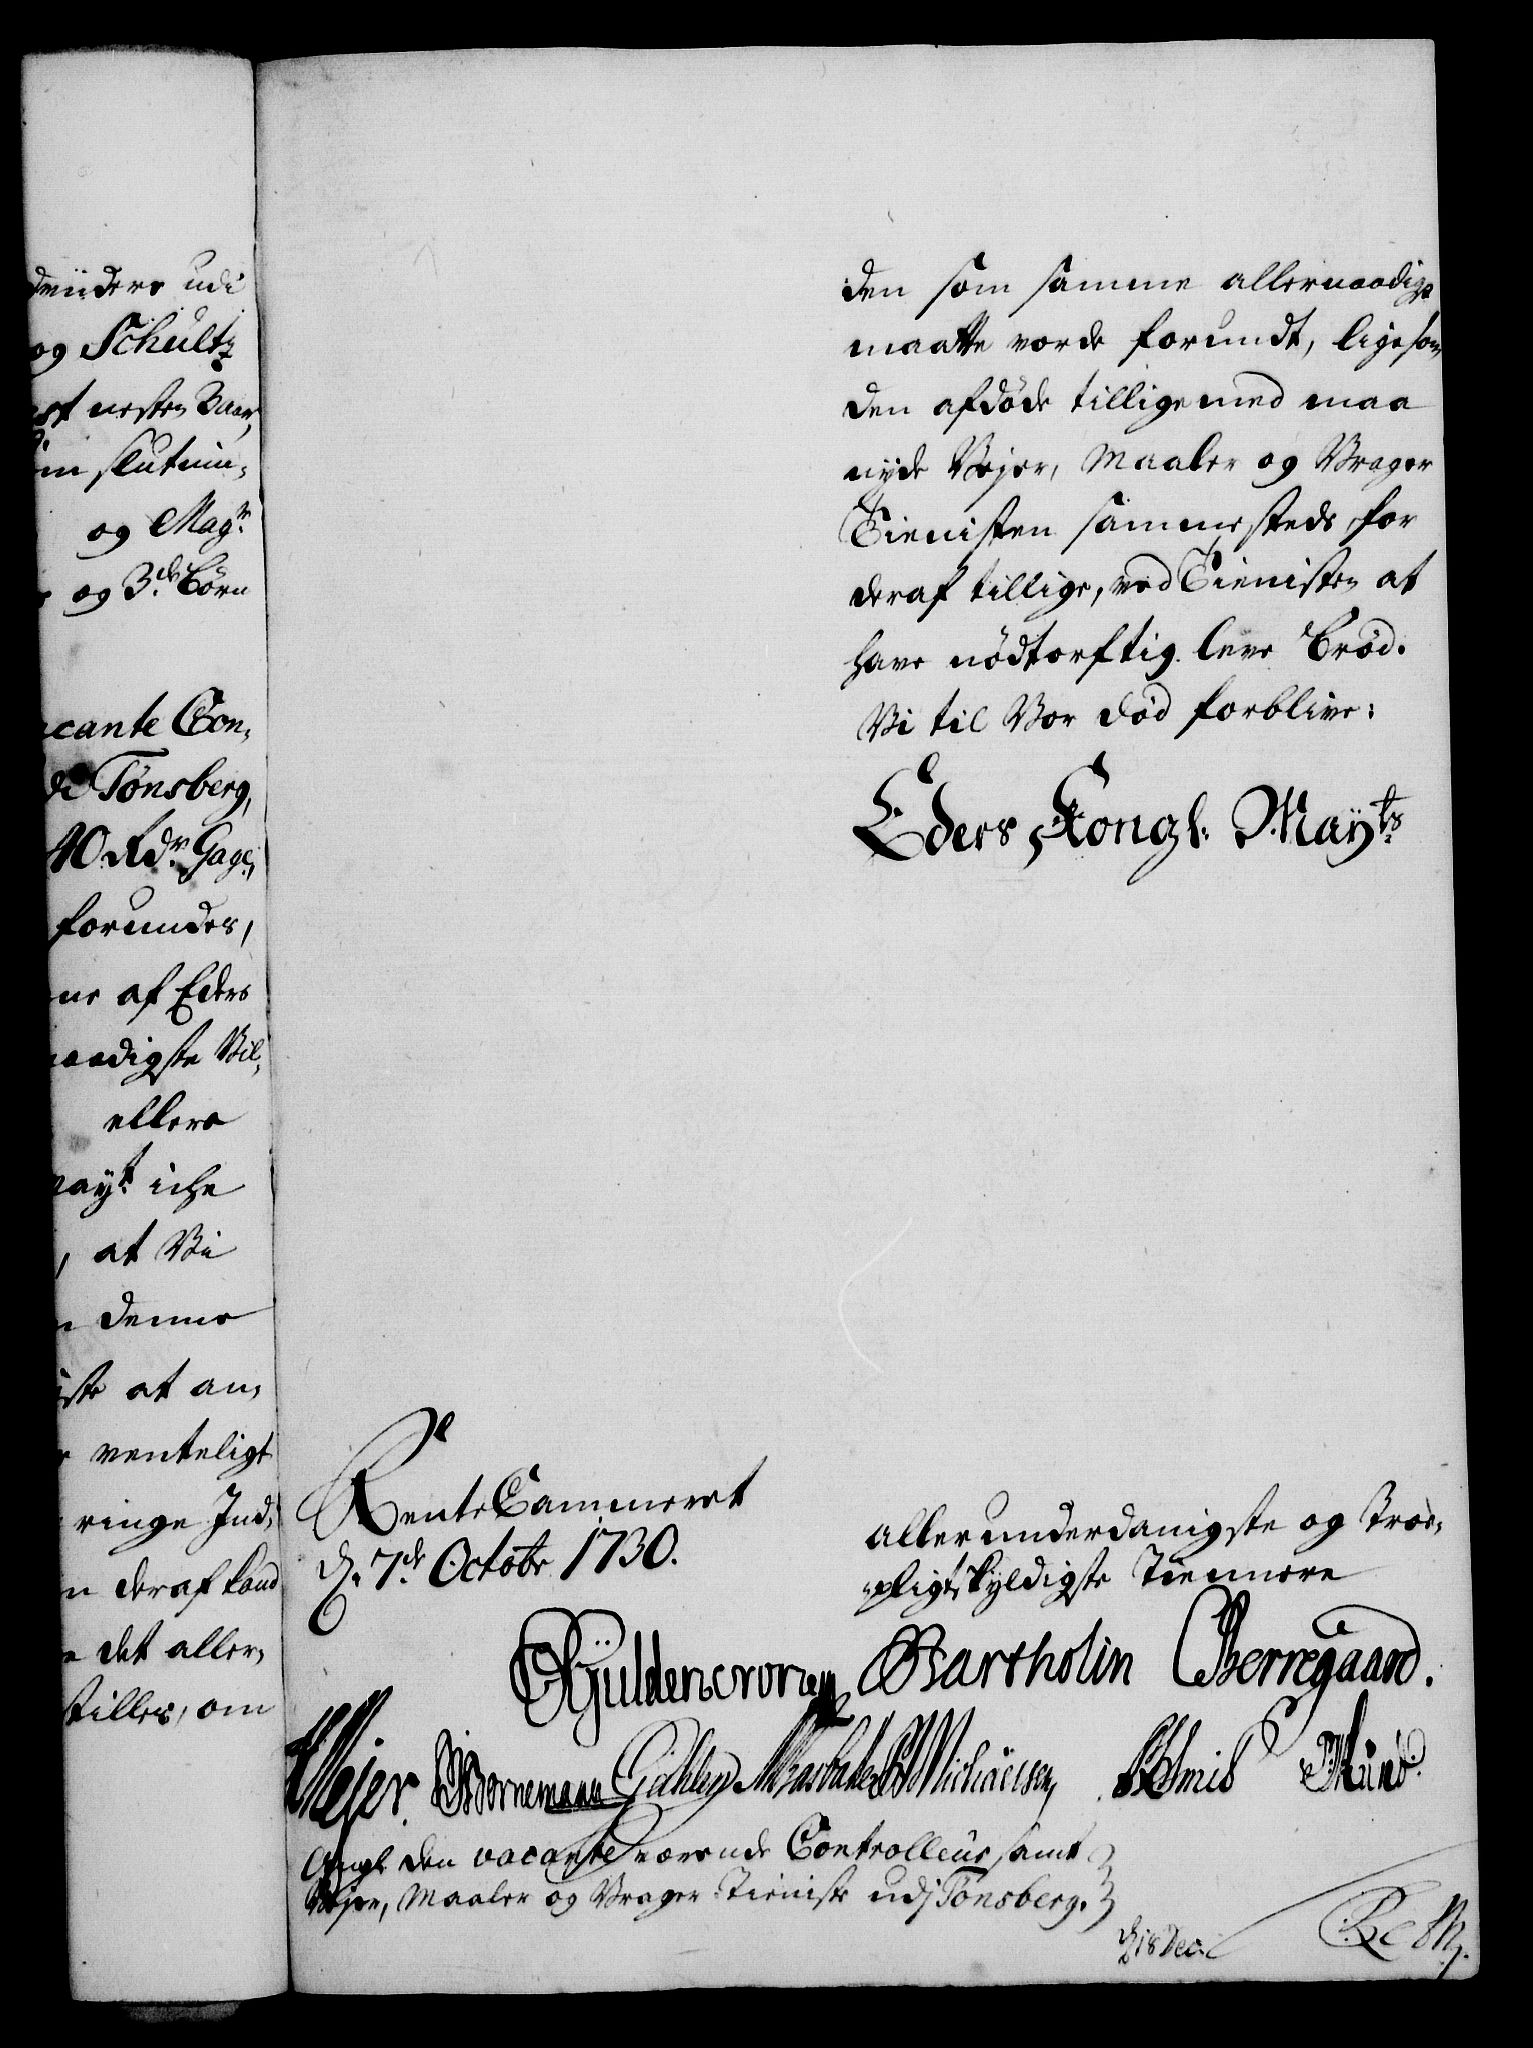 dviiders udi
og Schultz
nesten 3 aar,
slutnin,
og Magr.
og 3de Börn
vacante Con,
Tönsberg,
40 Rdr. Gage,
forundes,
af Eders
naadigste Vil,
ellers
Mayt. iche
, at Vi
denne
at an,
venteligt
ringe Ind,
deraf kand
det aller,
stilles, om
den som samme allernaadigst
maatte vorde forundt, ligesom
den afdöde tilligemed maa
nyde Vejer, Maaler og Vrager
Tienisten sammesteds, for
deraf tillige, ved Tienisten at
have nödtorftig leve Bröd.
Vi til Vor död forblive:
Eders Kongl: Mayts
RenteCammeret
d. 7de Octobr 1730.
allerunderdanigste og Troe,
pligtskyldigste Tiennere
Gÿldencrone Bartholin Berregaard.
Mejer. Bornemann Michaelsen
Angl den vacante værende Controlleur samt
Vejer, Maaler og Vrager Tieniste udj Tönsberg.
d 18 Dec: